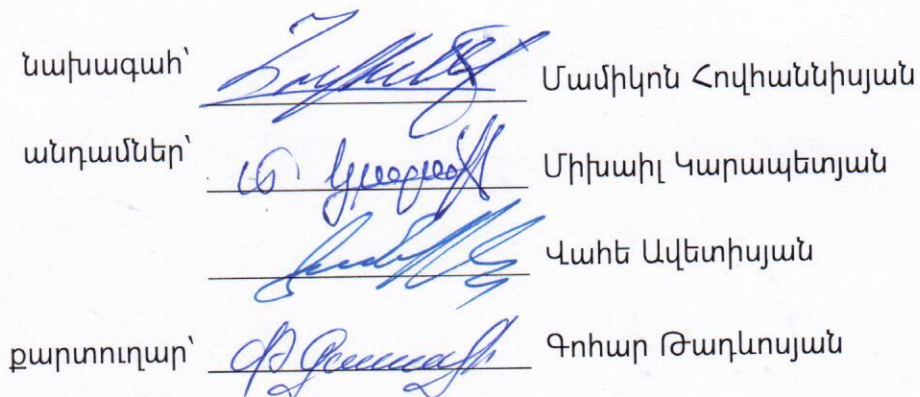 նախագահ՝ Մամիկոն Հովհաննիսյան
անդամներ՝ Միխաիլ Կարապետյան
Վահե Ավետիսյան
քարտուղար՝ Գոհար Թադևոսյան